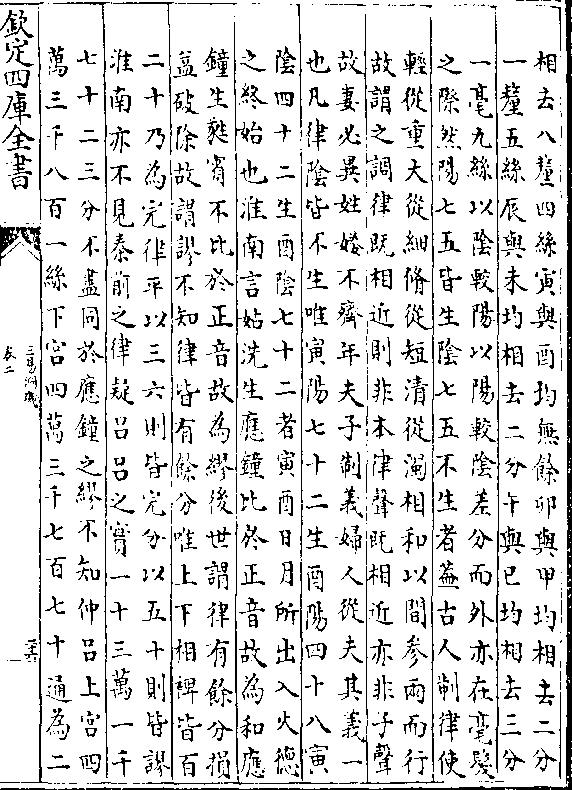 相去八釐四絲寅與酉均無餘卯與甲均相去二分
一釐五絲辰與未均相去二分午與巳均相去三分
一毫九絲以陰較陽以陽較陰差分而外亦在毫髮
之際然陽七五皆生陰七五不生者蓋古人制律使
輕從重大從細脩從短清從濁相和以間參兩而行
故謂之調律既相近則非本律聲既相近亦非子聲
故妻必異姓婚不齊年夫子制義婦人從夫其義一
也凡律陰皆不生唯寅陽七十二生酉陽四十八寅
陰四十二生酉陰七十二者寅酉日月所出入火德
之終始也淮南言姑洗生應鐘比於正音故為和應
鐘生蕤賓不比於正音故為繆後世謂律有餘分損
益破除故謂謬不知律皆有餘分唯上下相裨皆百
二十乃為完律平以三六則皆完分以五十則皆謬
淮南亦不見秦前之律疑呂呂之實一十三萬一千
七十二三分不盡同於應鐘之繆不知仲呂上宮四
萬三千八百一絲下宮四萬三千七百七十通為二
欽定四庫全書
三易洞璣
卷二